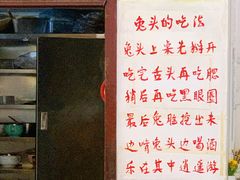 兔头的吃法
兔头上来先掰开
吃完舌头再吃腮
稍后再吃黑眼圈
最后兔脑挖出来
边啃兔头边喝酒
乐在其中逍遥游